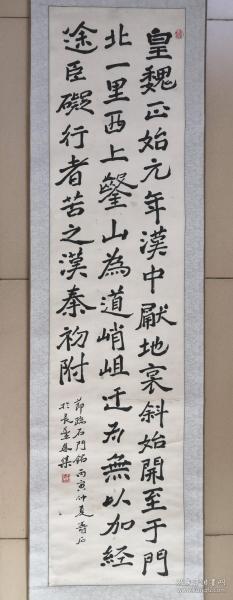 皇魏正始元年漢中厭地褒斜始開至于門
北一里西上鑿山為道峭岨迂而無以加經
途巨礙行者苦之漢秦初附
節臨石門銘丙寅仲夏壽石
於長